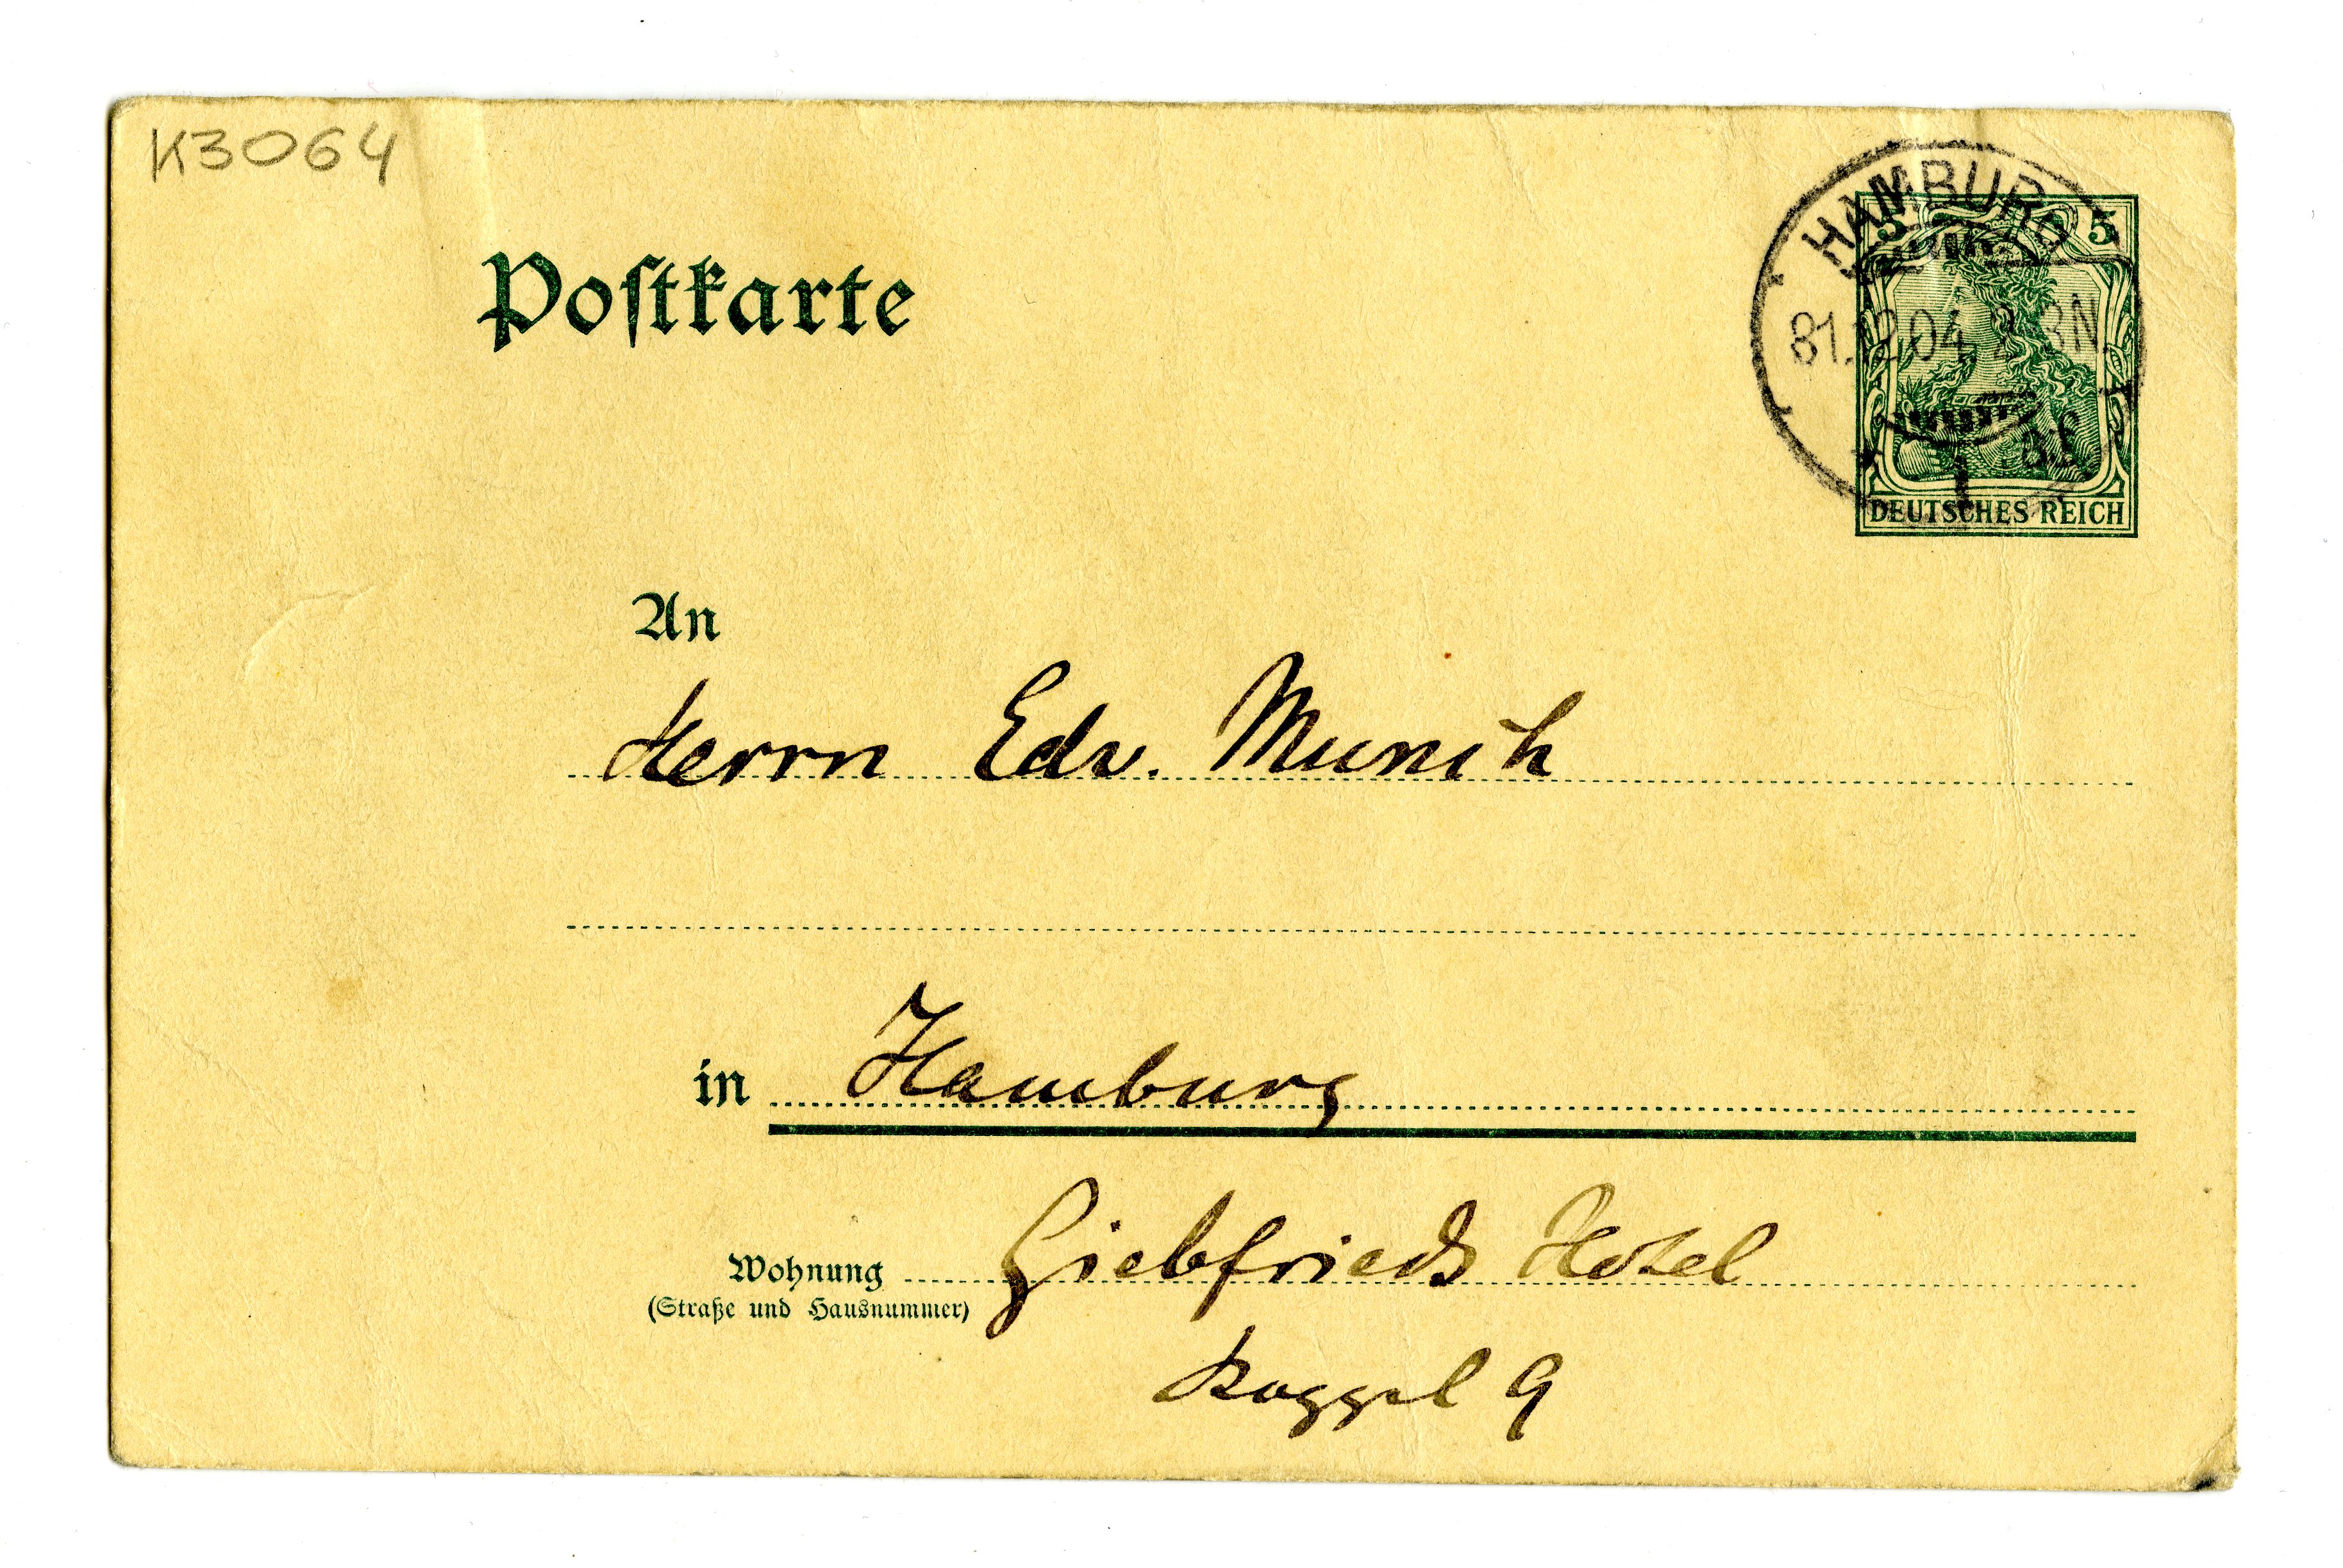 K3064
Postkarte
HAMBURG
5 5
31.12.04. 2-3N.
1
DEUTSCHES REICH
An
Herrn Edv. Munch
in Hamburg
Wohnung Giebfrieds Hotel
(Straße und Hausnummer)
Koppel 9